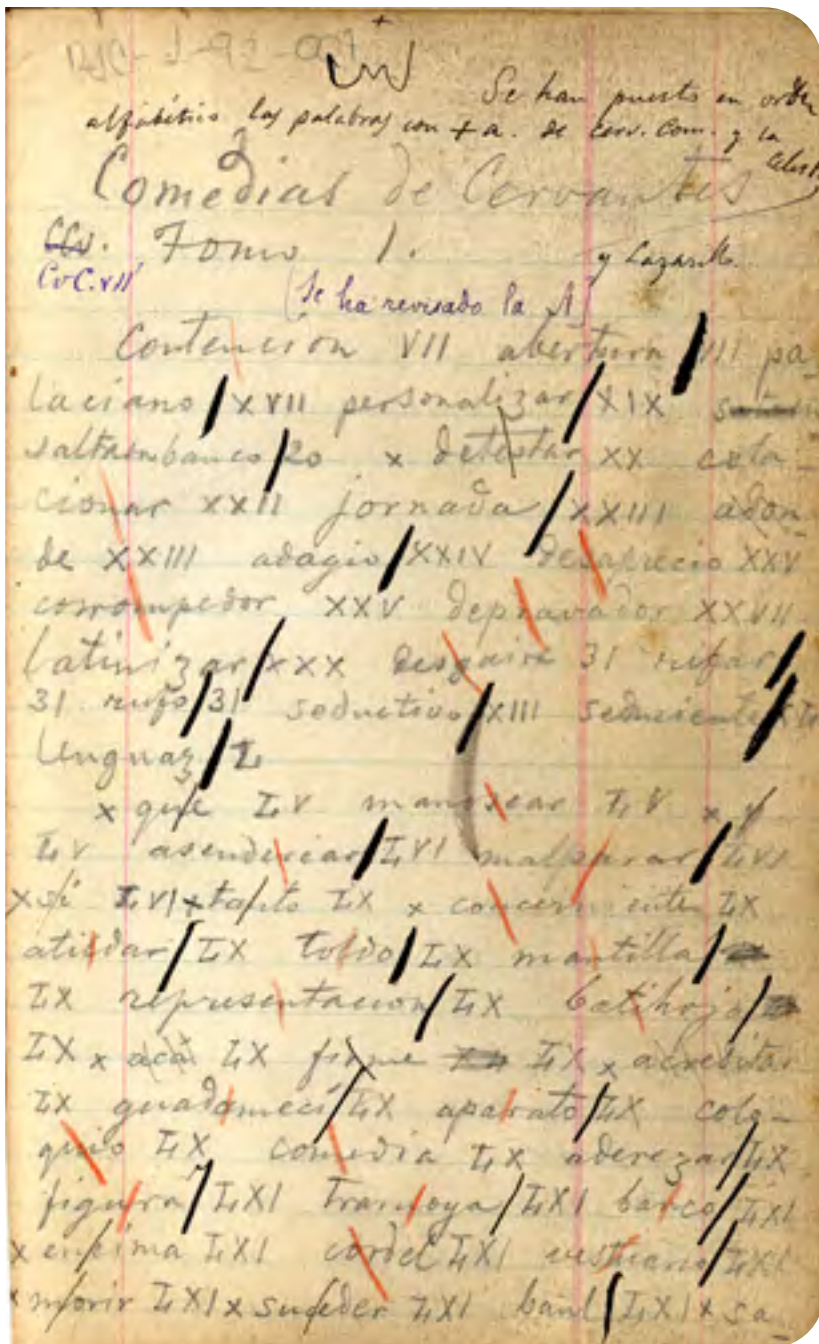 Se han puesto en orden
alfabético las palabras con + a. de Cerv. Com. y la
Celest.
Comedias de Cervantes
CCv. Tomo 1. y Lazarillo.
CvC.VII
(Se ha revisado la A)
Contención VII abertura VII pa-
laciano XVII personalizar XIX
saltaembanco 20 x detestar XX cola-
cionar XXII jornada XXIII adon-
de XXIII adagio XXIV desaprecio XXV
corrompedor XXV depravador XXVII
latinizar XXX desgaire 31 rufar
31 rufo 31 seductivo XIII seduciente
lenguaz L
x que LV manosear LV x y
LV asenderear LVI malparar LVI
x si LVI x tanto LX x concerniente LX
atildar LX toldo LX mantilla
LX representacion LX batihoja
LX x acá LX firme LX x acreditar
LX guadamecí LX aparato LX colo-
quio LX comedia LX aderezar LX
figura LXI tramoya LXI barco LXI
x encima LXI cordel LXI vestuario LXI
x morir LXI x suceder LXI baul LXI x sa-